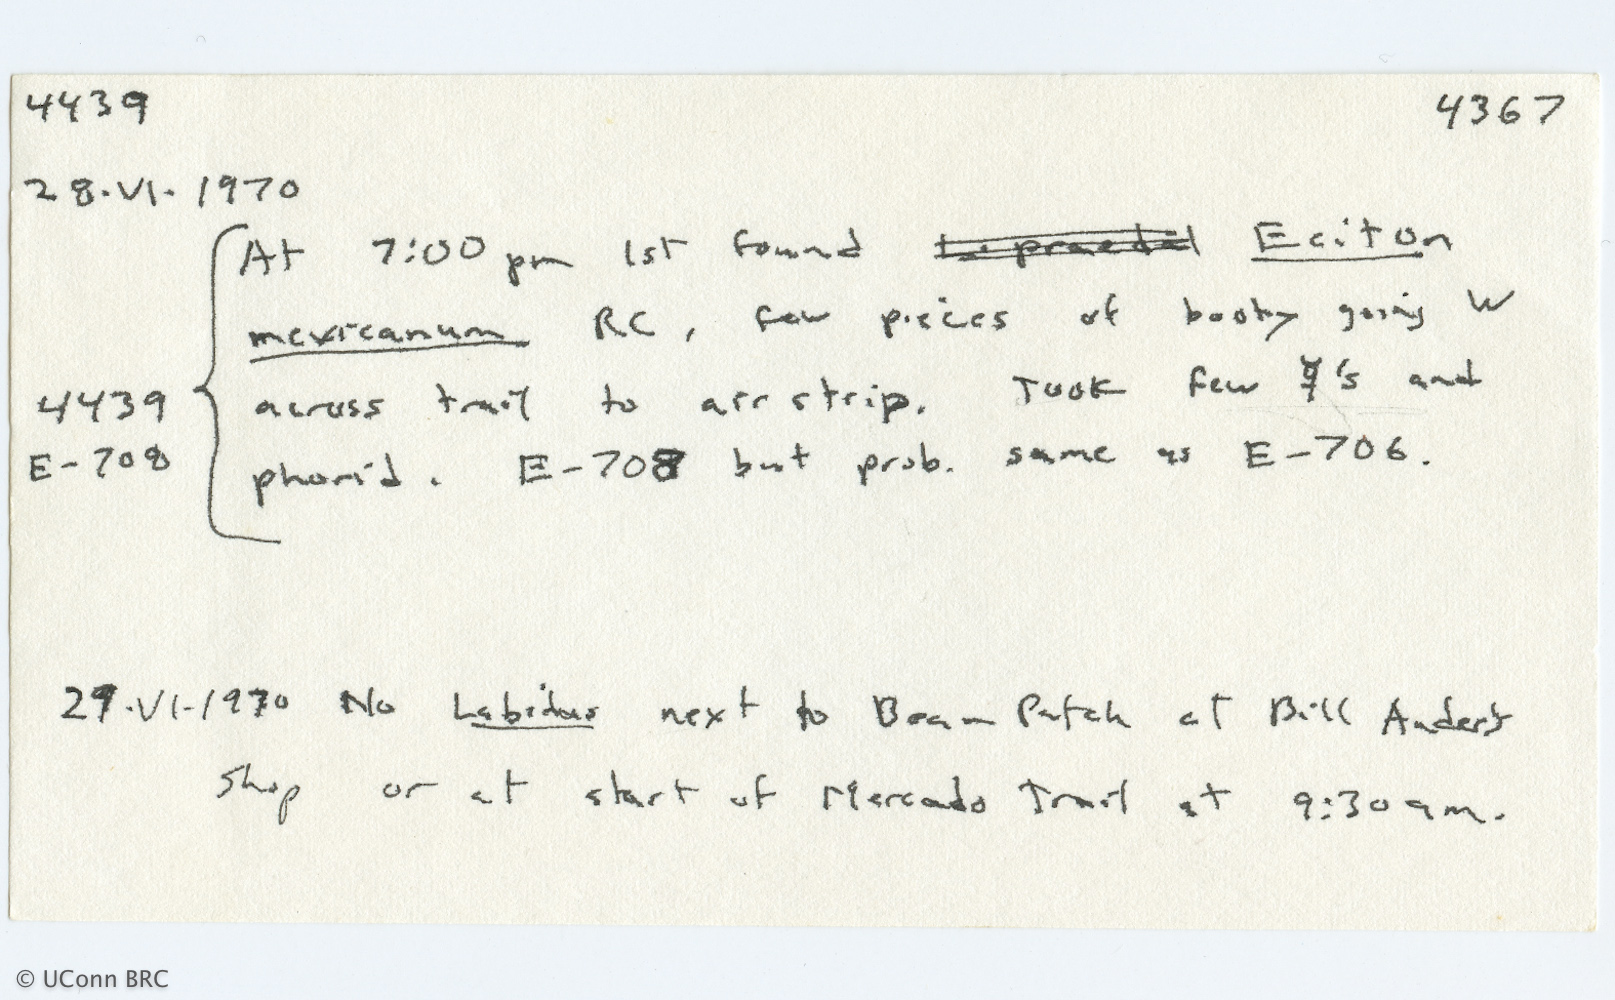 4439 4367
28.VI.1970
At 7:00 pm 1st found L. praedat Eciton
mexicanum RC, few pieces of booty going W
across trail to air strip. Took few ☿'s and
4439
phorid. E-708 but prob. same as E-706.
E-708
29.VI.1970 No Labidus next to Bean Patch at Bill Ander's
Shop or at start of Mercado Trail at 9:30 am.
© UConn BRC